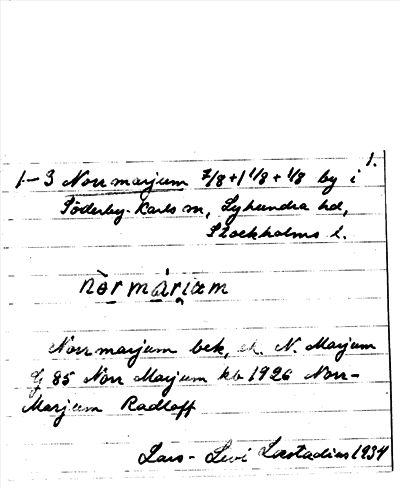 1.
1-3 Norrmarjum 7/8+1 1/8+1/8 by i
Söderby-Karls sn, Lyhundra hd,
Stockholms l.
nòrmáriæm
Norrmarjum bek, ek. N. Marjum
Gj 85 Norr Marjum kb 1926 Norr-
Marjum Radloff
Lars-Levi Læstadius 1934